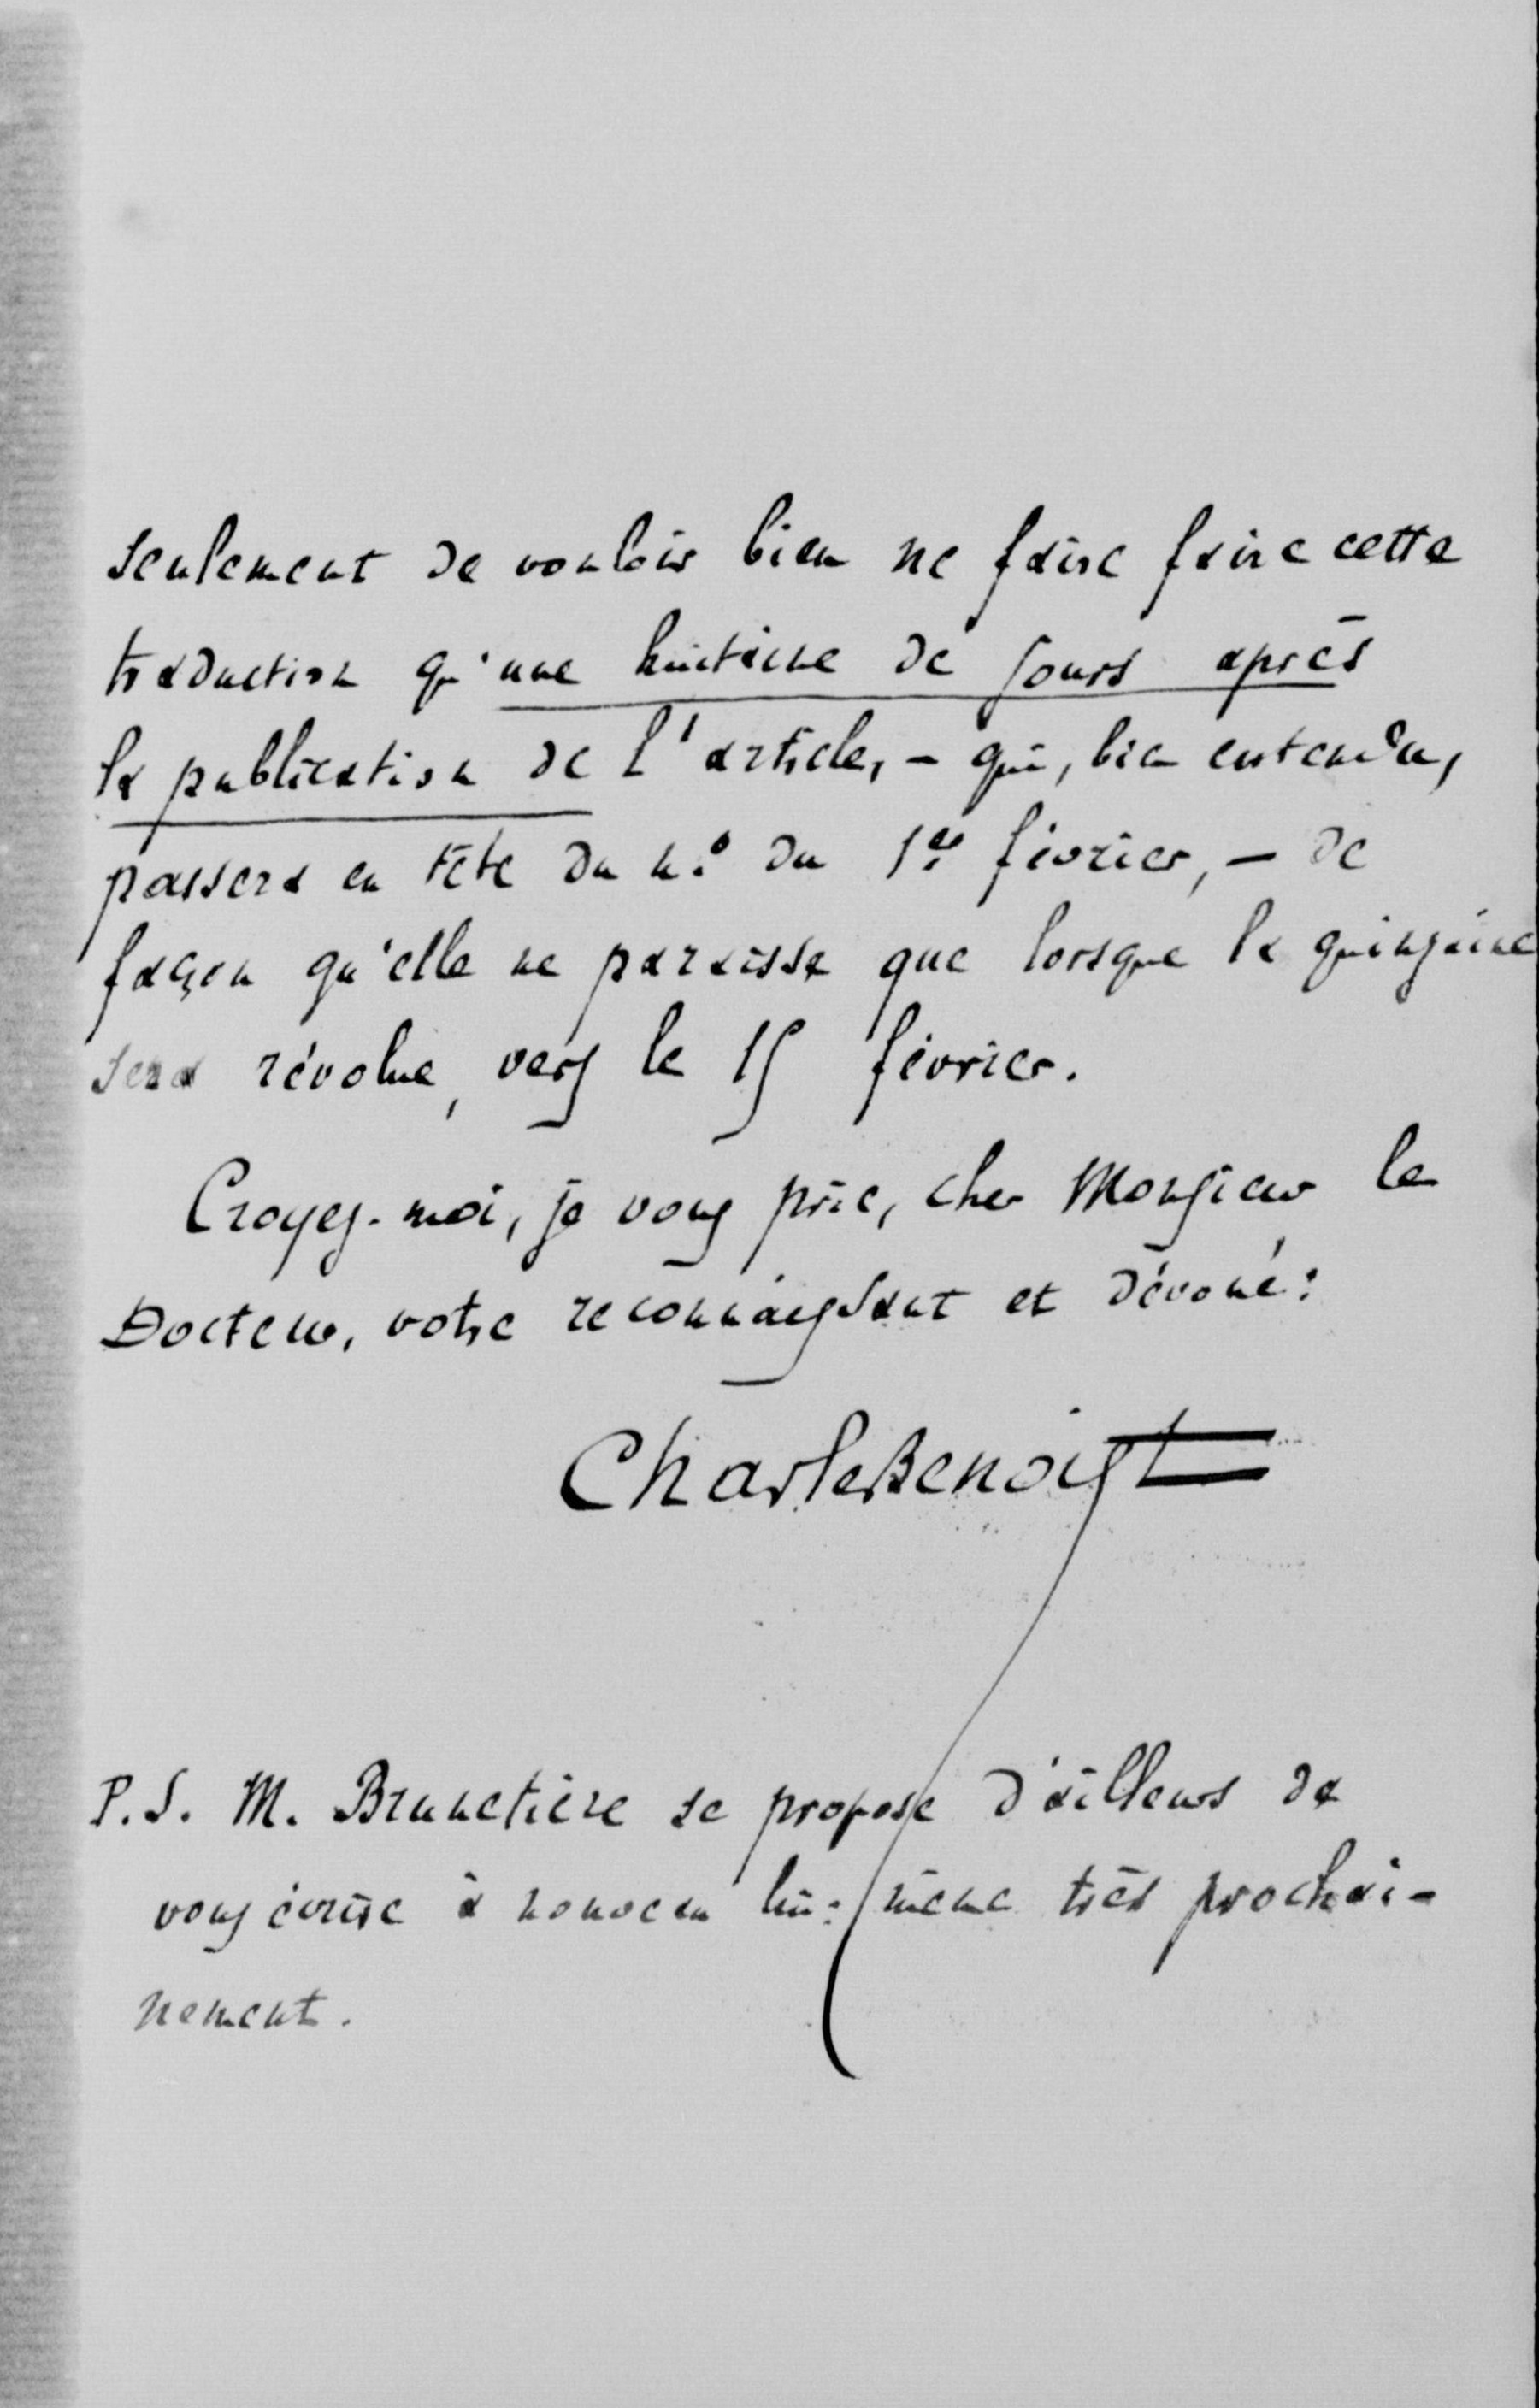 seulement de vouloir bien ne faire faire cette
traduction qu'une huitaine de jours après
la publication de l'article, – qui, bien entendu,
passera en tête du n.º du 1er février, – de
façon qu'elle ne paraisse que lorsque la quinzaine
sera révolue, vers le 15 février.
Croyez-moi, je vous prie, cher Monsieur le
Docteur, votre reconnaissant et dévoué :
Charles Benoist
P.S. M. Brunetière se propose d'ailleurs de
vous écrire à nouveau lui-même très prochai-
nement.